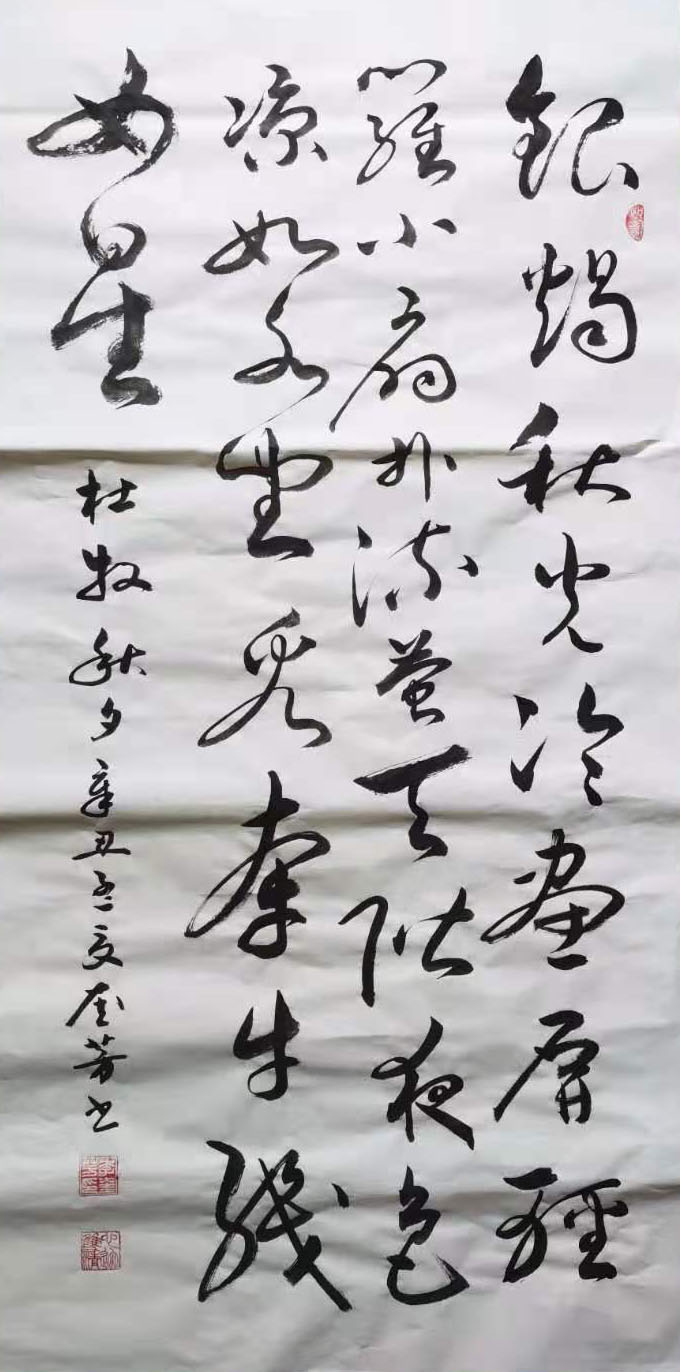 銀燭秋光冷畫屏輕
羅小扇扑流螢天階夜色
凉如水坐看牽牛織
女星
杜牧秋夕辛丑奎芳书